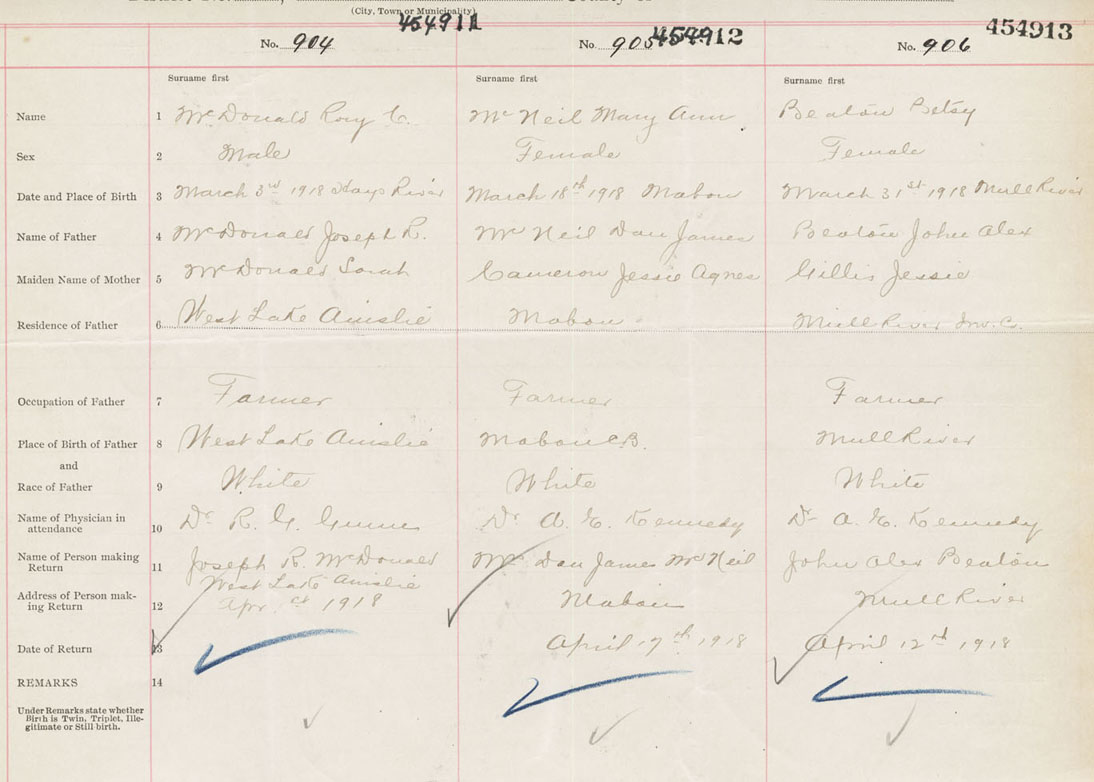 (City, Town or Municipality)
454911
No. 904
No. 905 454912
No. 906 454913
Surname first Surname first Surname first
Name 1 McDonald Rory C. McNeil Mary Ann Beaton Betsy
Sex 2 Male Female Female
Date and Place of Birth 3 March 3rd 1918 Hays River March 18th 1918 Mabou March 31st 1918 Mull River
Name of Father 4 McDonald Joseph R. McNeil Dan James Beaton John Alex
Maiden Name of Mother 5 McDonald Sarah Cameron Jessie Agnes Gillis Jessie
Residence of Father 6 West Lake Ainslie Mabou Mull River Inv. C.
Occupation of Father 7 Farmer Farmer Farmer
Place of Birth of Father 8 West Lake Ainslie Mabou C.B. Mull River
and
Race of Father 9 White White White
Name of Physician in
attendance 10 Dr. R. G. Dr A. E. Kennedy Dr A. E. Kennedy
Name of Person making
Return 11 Joseph R. McDonald Dan James McNeil John Alex Beaton
West Lake Ainslie
Address of Person mak-
ing Return 12 Apr 1918 Mabou Mull River
Date of Return 13 April 17th 1918 April 12nd 1918
REMARKS 14
Under Remarks state whether
Birth is Twin, Triplet, Ille-
gitimate or Still birth.